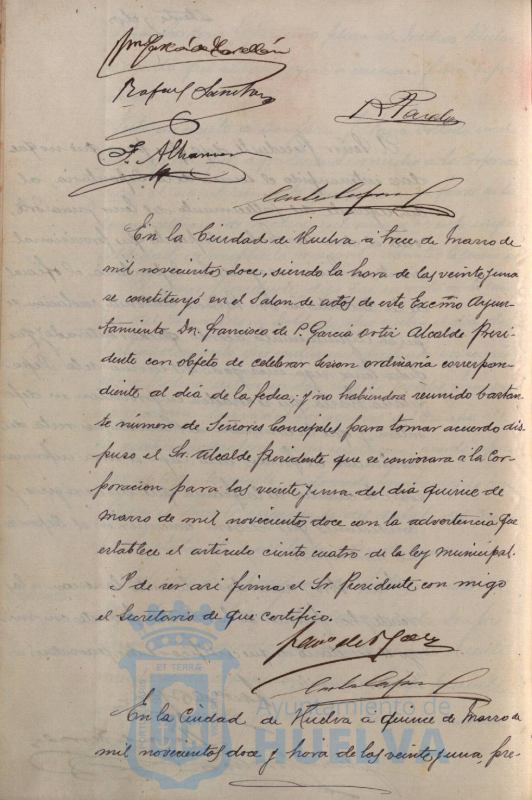 Rafael Sanchez
F. Alhamar
En la Ciudad de Huelva á trece de Marzo de
mil novecientos doce, siendo la hora de las veinte y una
se constituyó en el Salon de actos de este Excmo Ayun-
tamiento Dn. Francisco de P. García Ortiz Alcalde Presi-
dente con objeto de celebrar sesion ordinaria correspon-
diente al dia de la fecha; y no habiendose reunido bastan-
te número de Señores Concejales para tomar acuerdo dis
puso el Sr. Alcalde Presidente que se convocara á la Cor-
poracion para las veinte y una del dia quince de
Marzo de mil novecientos doce con la advertencia que
establece el articulo ciento cuatro de la ley Municipal.
Y de ser asi firma el Sr. Presidente con migo
el Secretario de que certifico.
ET TERRÆ
Ayuntamiento de
HUELVA
En la Ciudad de Huelva a quince de Marzo de
mil novecientos doce y hora de las veinte y una, pre-